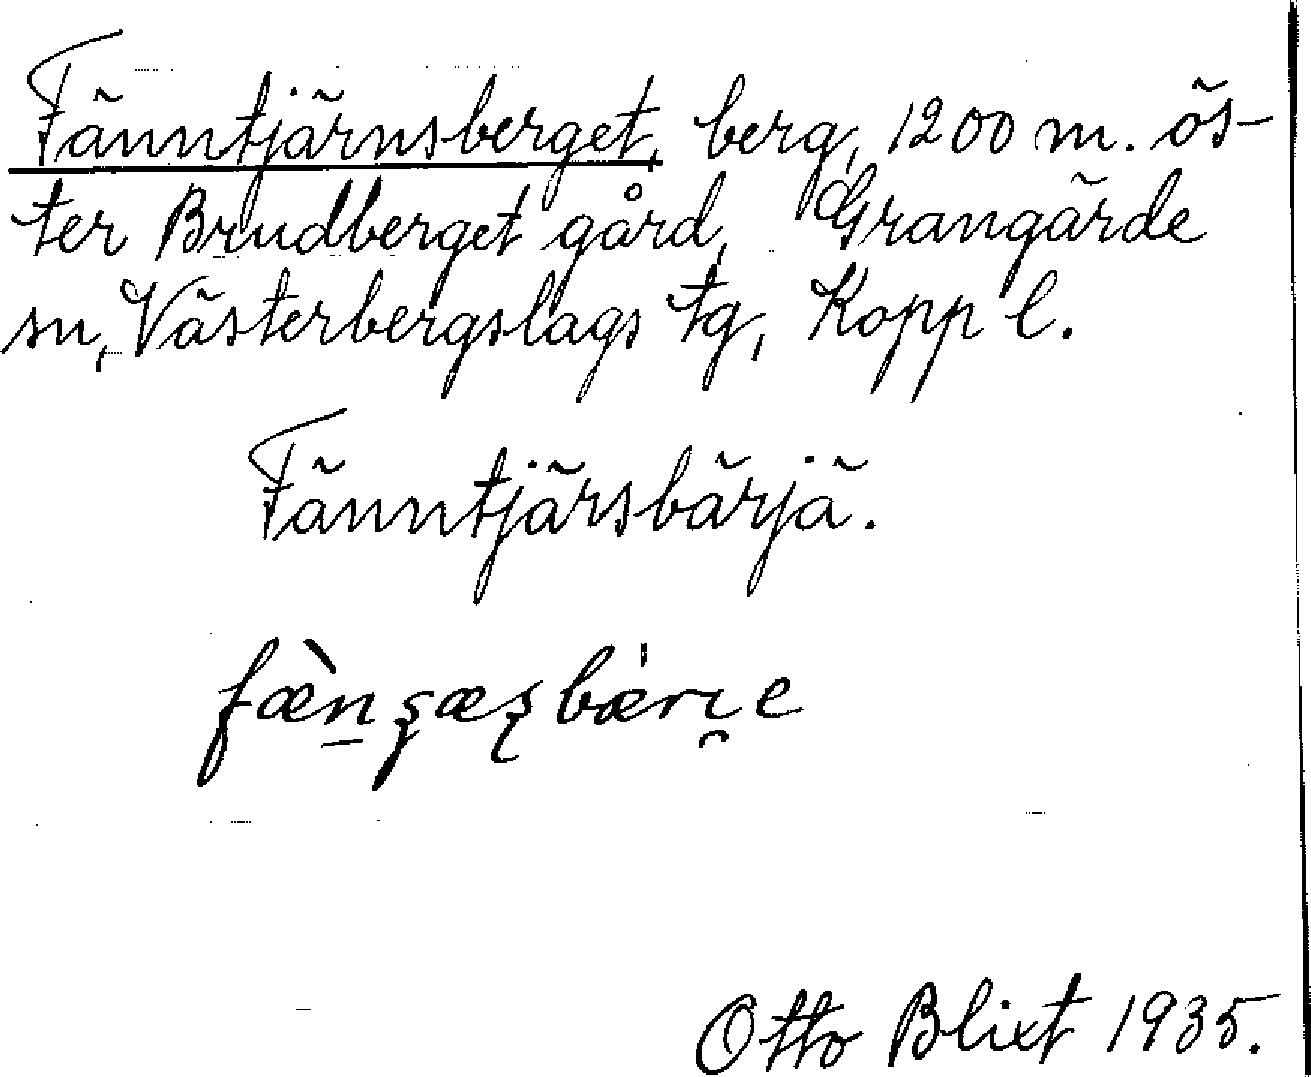 Fänntjärnsberget, berg, 1200 m. ös-
ter Brudberget gård, Grangärde
sn, Västerbergslags tg, Kopp l.
Fänntjärsbärjä.
Otto Blixt 1935.